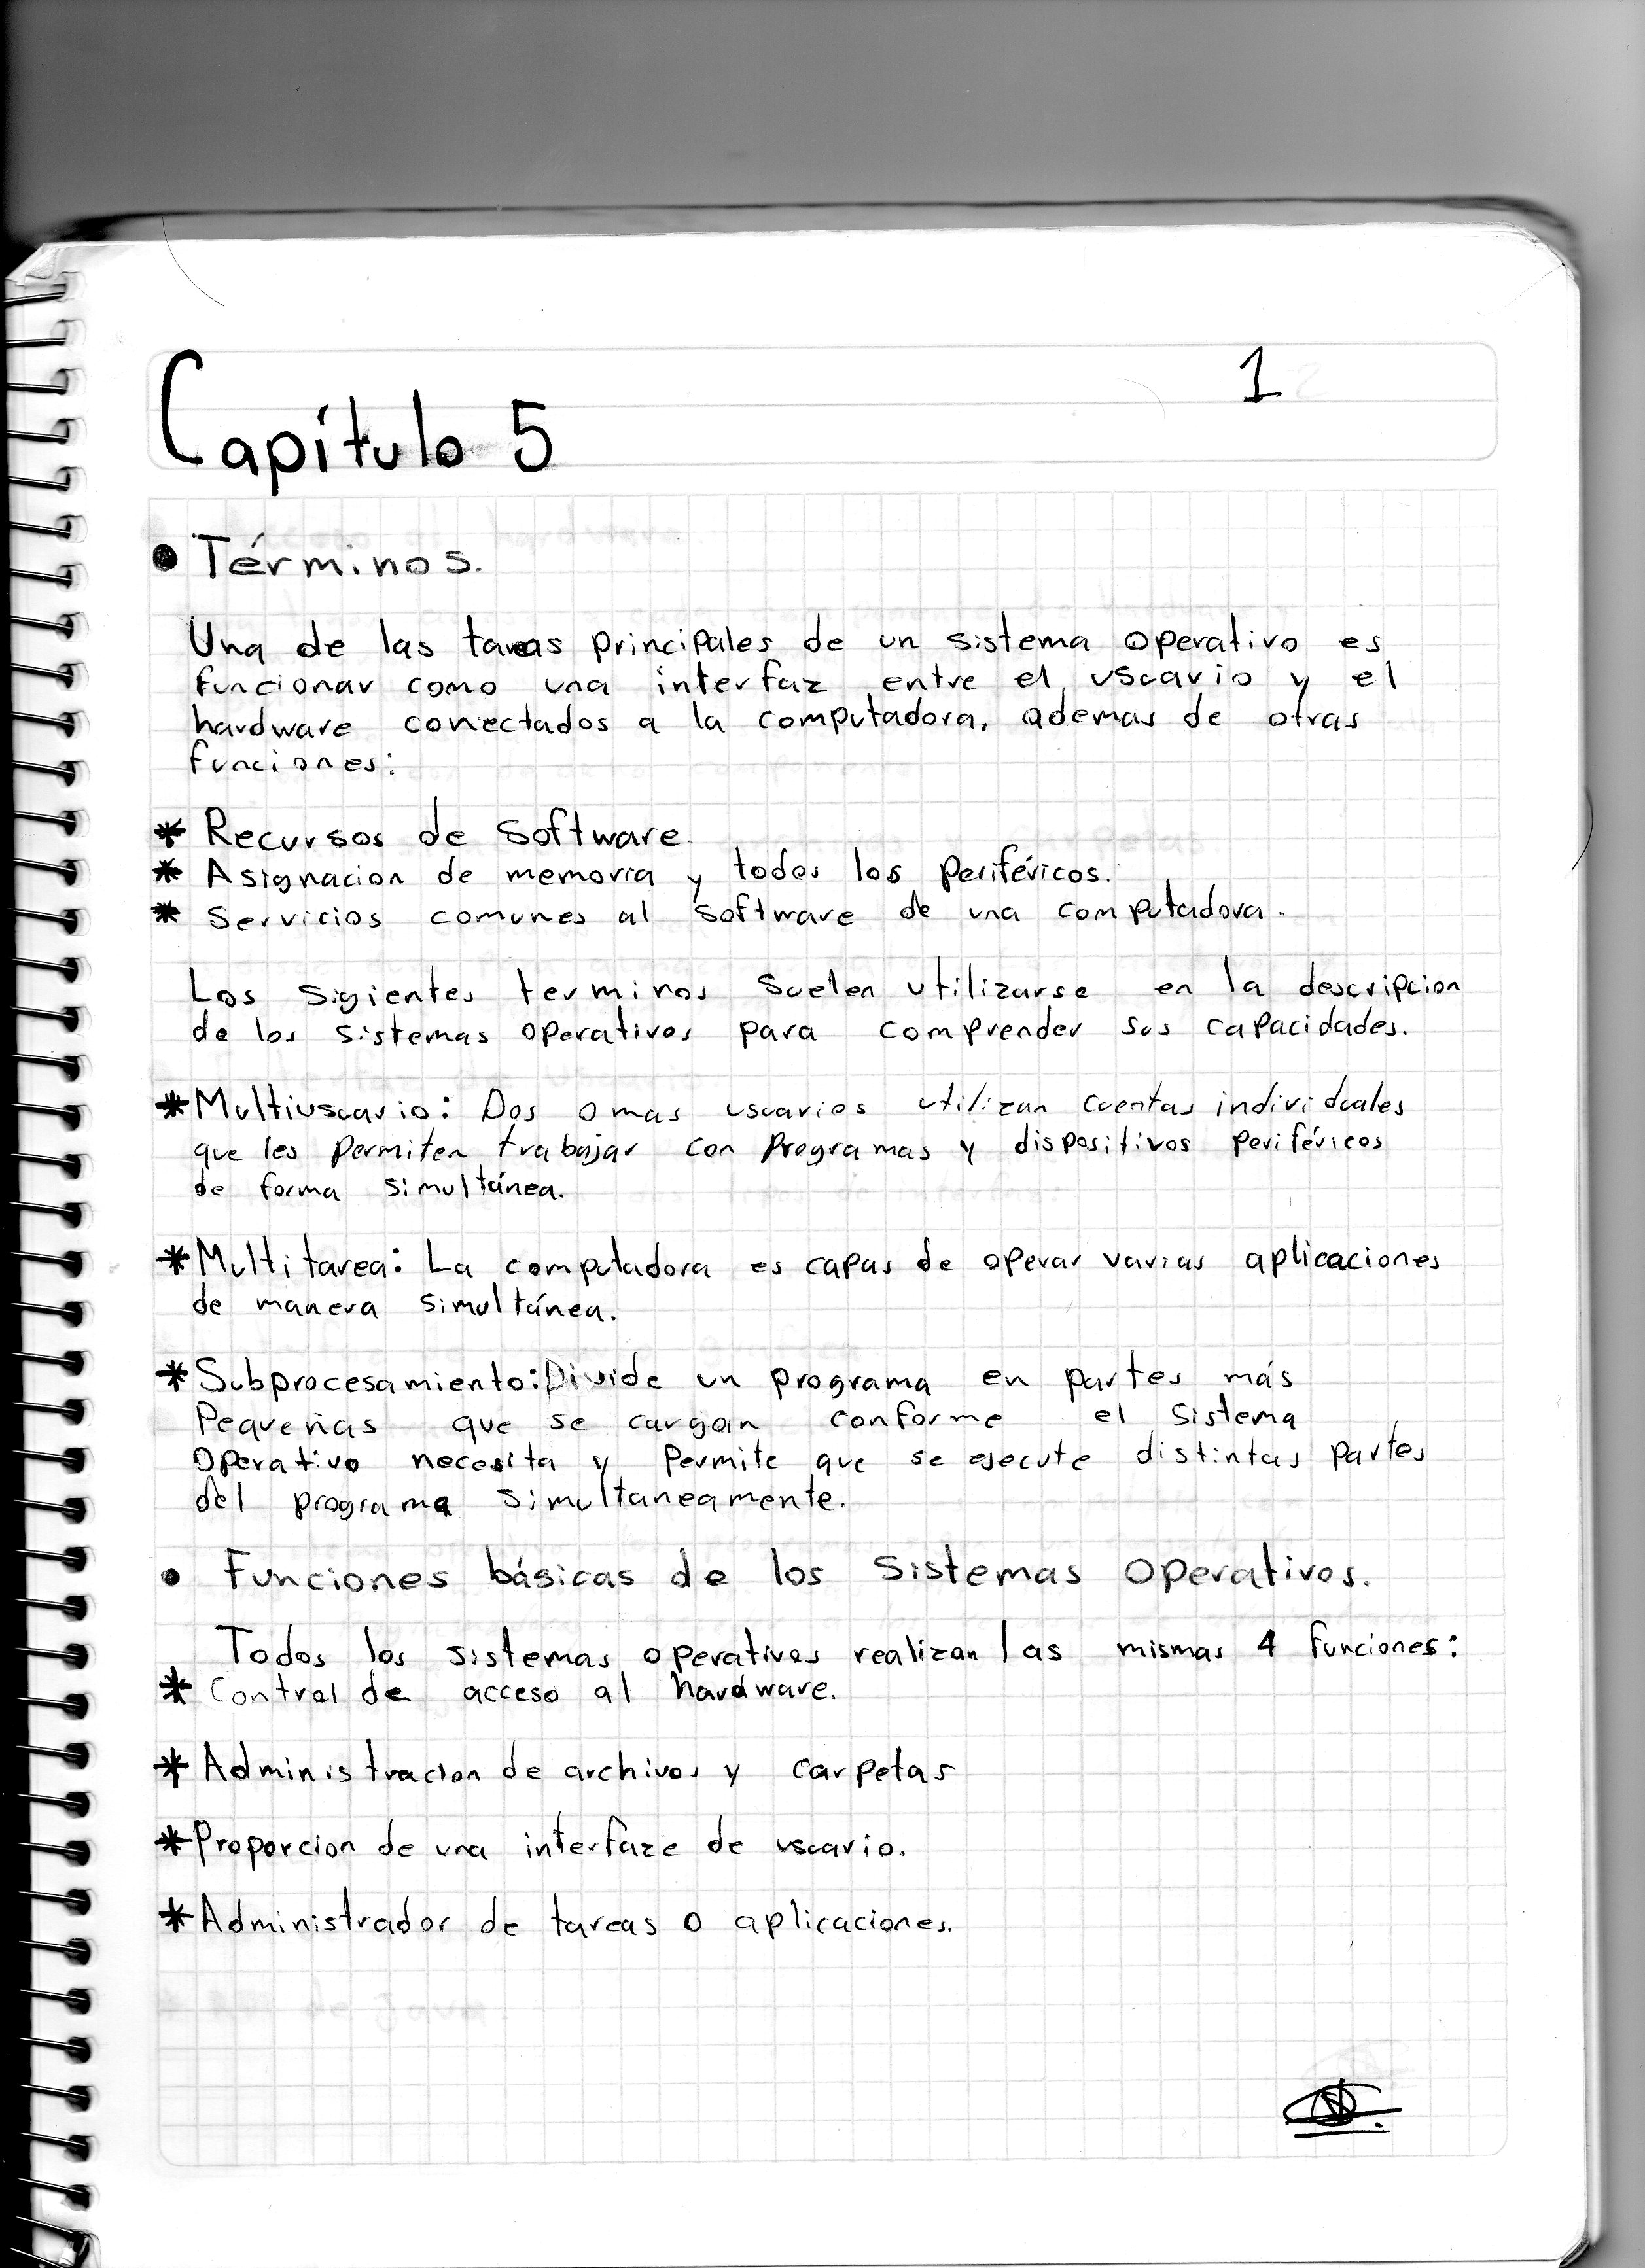 1
Capítulo 5
• Términos.
Una de las tareas principales de un sistema operativo es
funcionar como una interfaz entre el usuario y el
hardware conectados a la computadora, ademas de otras
funciones:
* Recursos de Software.
* Asignacion de memoria y todos los periféricos.
* Servicios comunes al software de una computadora.
Los sigientes terminos suelen utilizarse en la descripcion
de los sistemas operativos para comprender sus capacidades.
*Multiusuario: Dos o mas usuarios utilizan cuentas individuales
que les permiten trabajar con programas y dispositivos periféricos
de forma simultánea.
*Multitarea: La computadora es capas de operar varias aplicaciones
de manera simultánea.
*Subprocesamiento: Divide un programa en partes más
pequeñas que se cargan conforme el sistema
operativo necesita y permite que se ejecute distintas partes
del programa simultaneamente.
• Funciones básicas de los sistemas operativos.
Todos los sistemas operativos realizan las mismas 4 funciones:
* Control de acceso al hardware.
* Administracion de archivos y carpetas
*Proporcion de una interfaze de usuario.
*Administrador de tareas o aplicaciones.